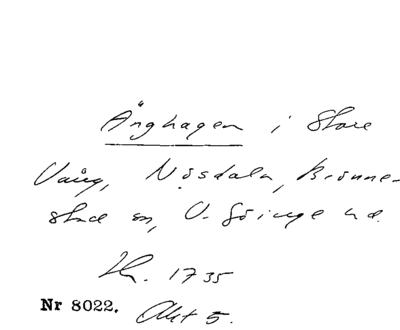 Änghagen i Store
Vång, Nösdala, Brönne-
stad sn, V. Göinge hd.
1735
Nr 8022. Akt 5.